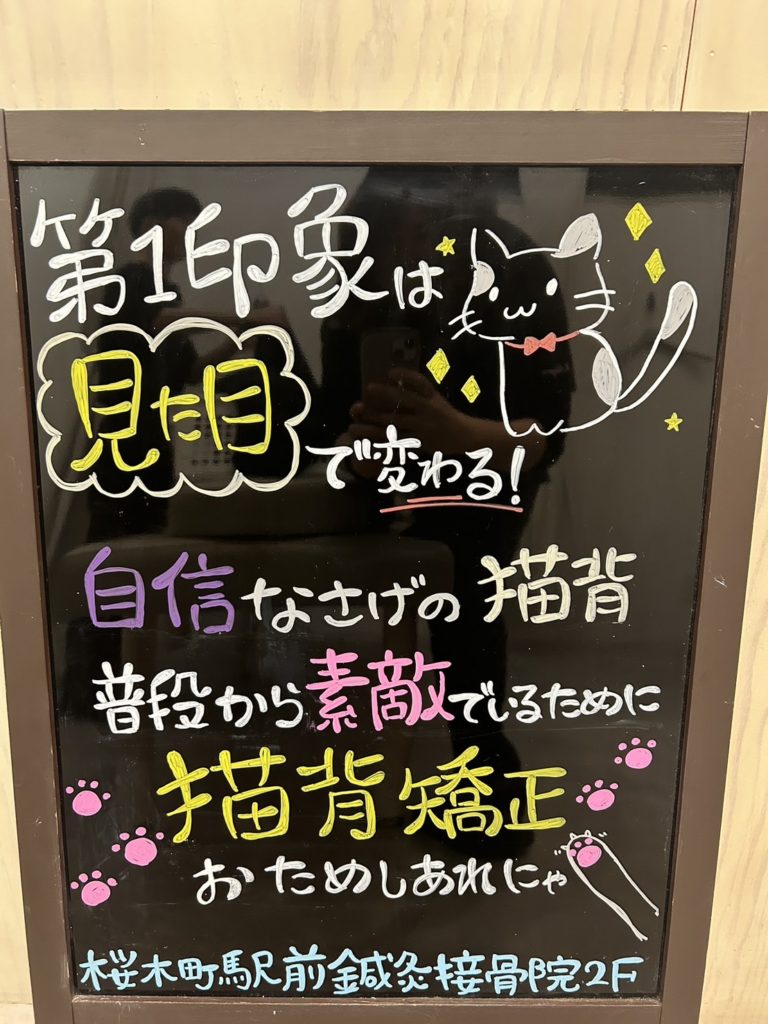 第1印象は
見た目
で変わる!
自信なさげの描背
普段から素敵でいるために
描背矯正
おためしあれにゃ
桜木町駅前鍼灸接骨院2F